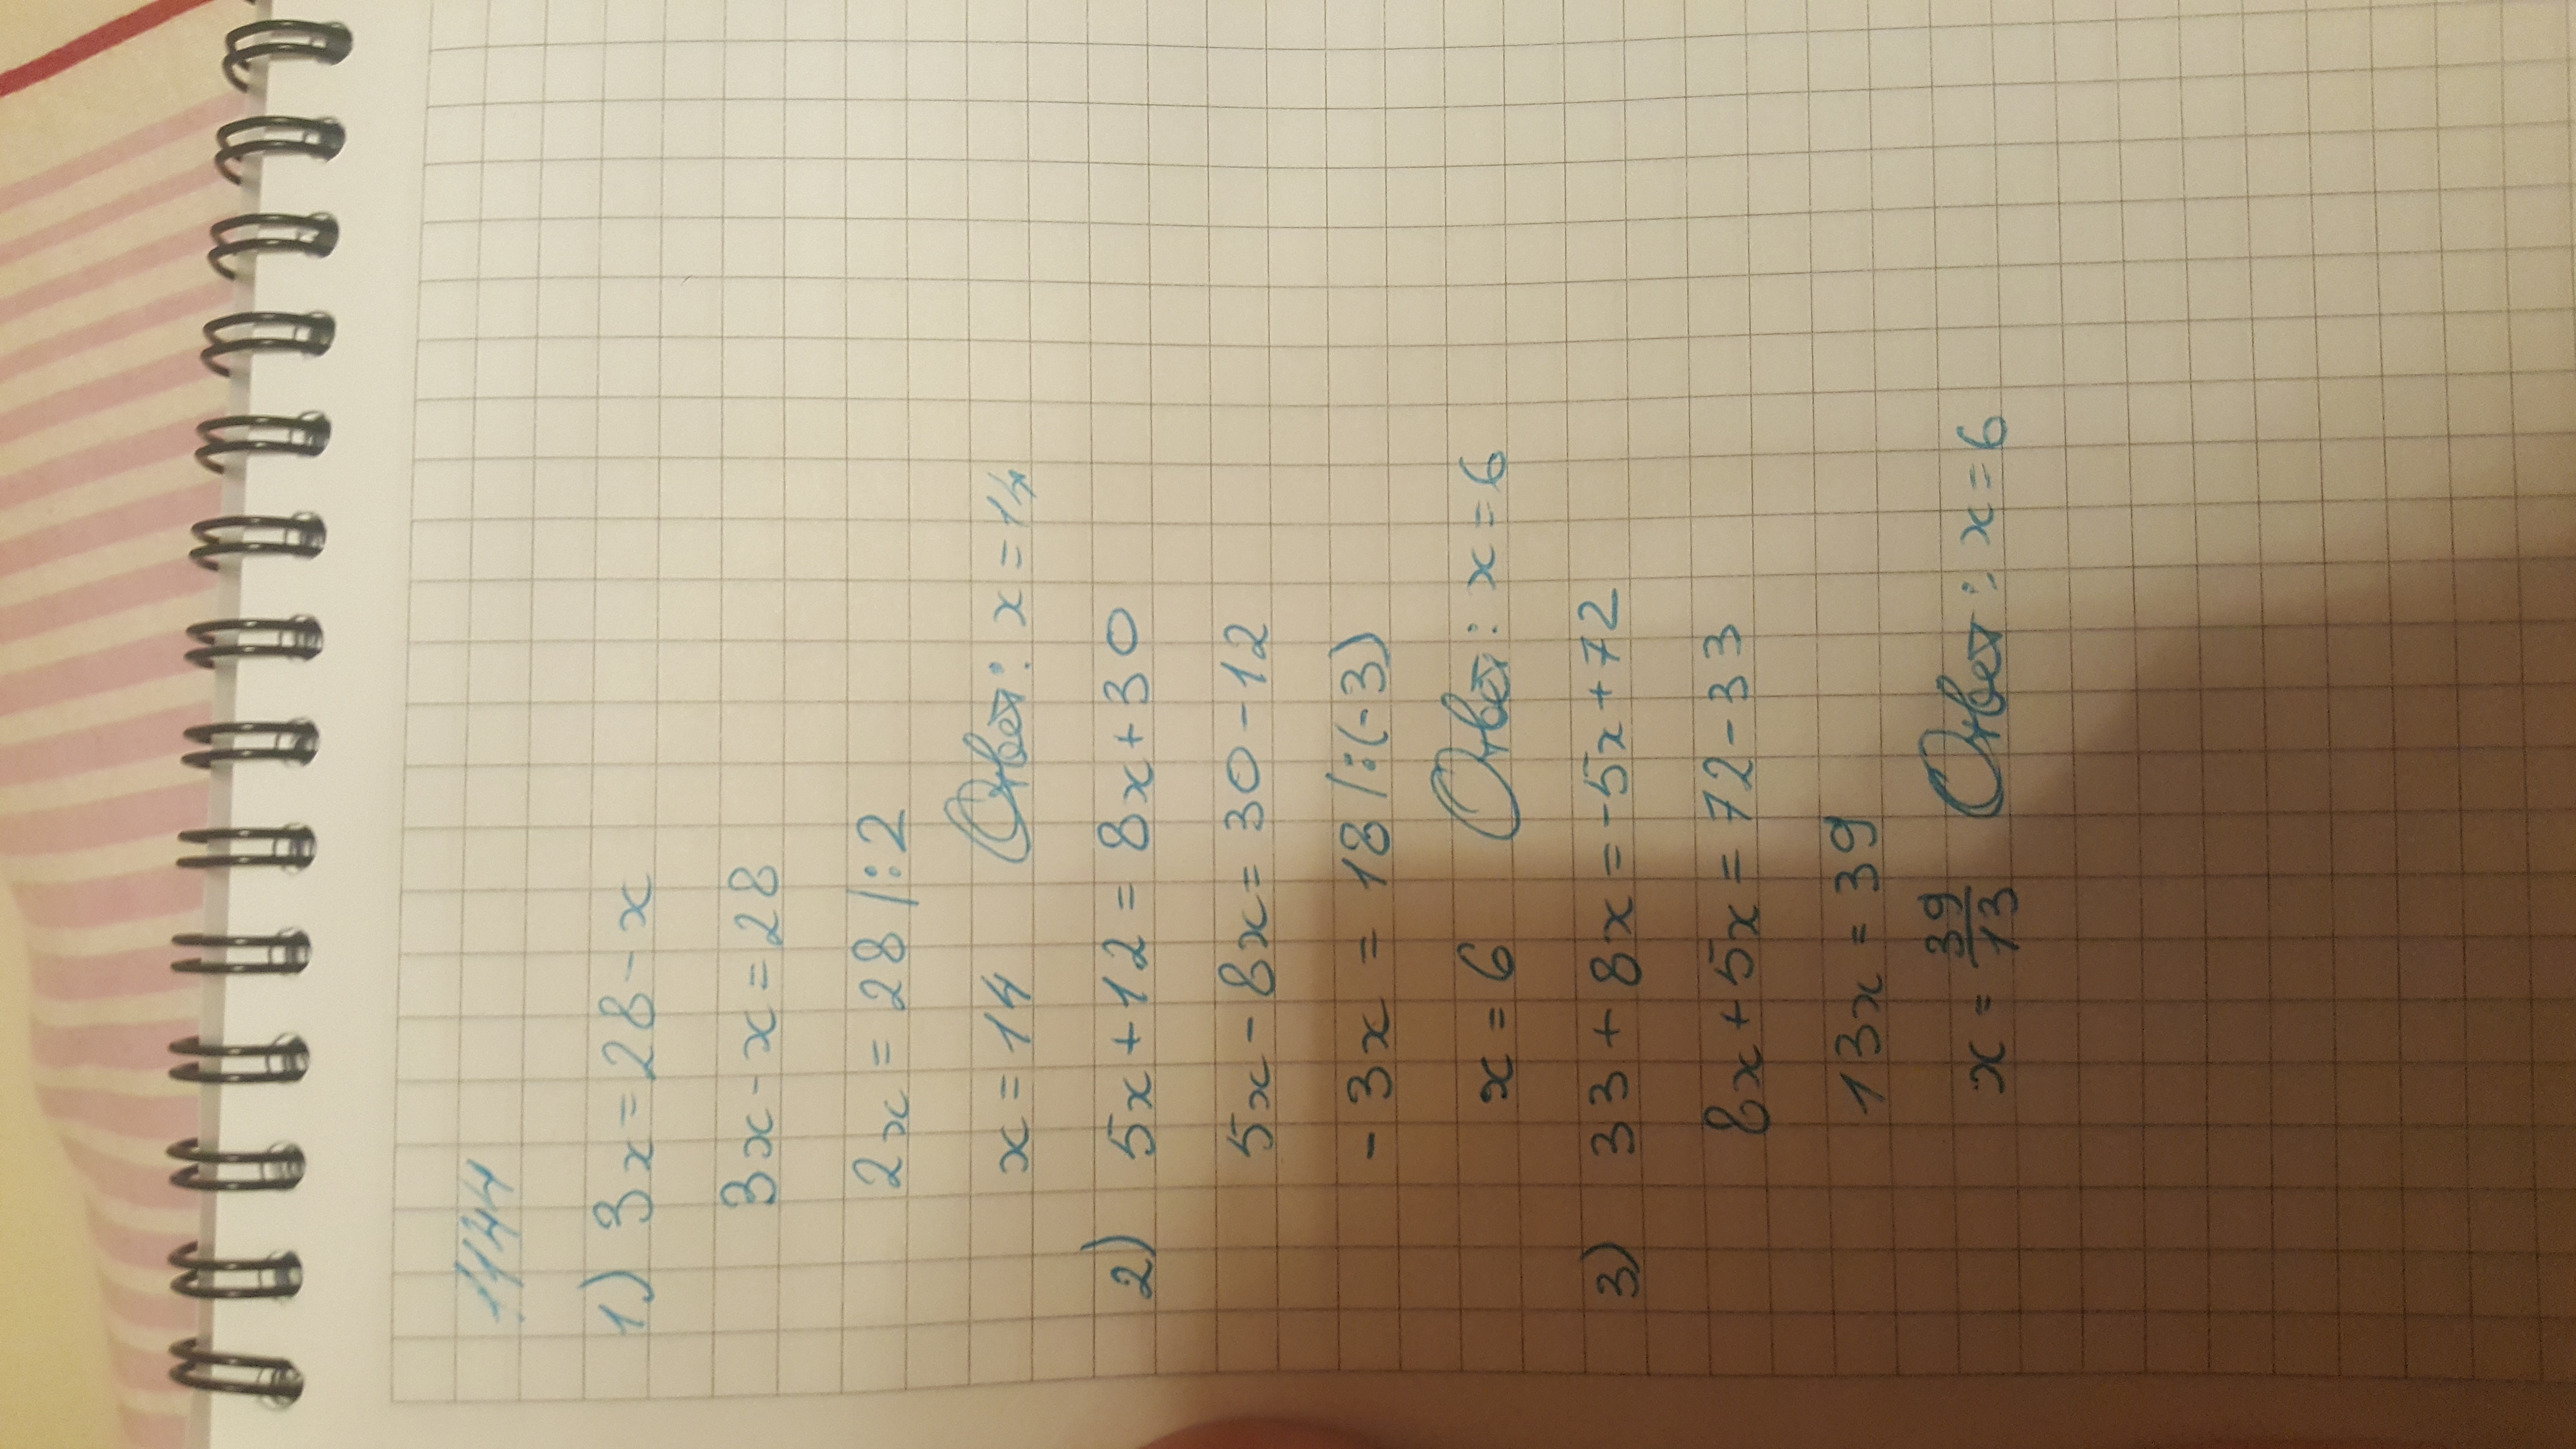 1144
1) 3x = 28 - x
3x - x = 28
2x = 28 /:2
x = 14 Ответ: x = 14
2) 5x + 12 = 8x + 30
5x - 8x = 30 - 12
- 3x = 18 /:(-3)
x = 6 Ответ: x = 6
3) 33 + 8x = -5x + 72
8x + 5x = 72 - 33
13x = 39
x = 39/13 Ответ: x = 6